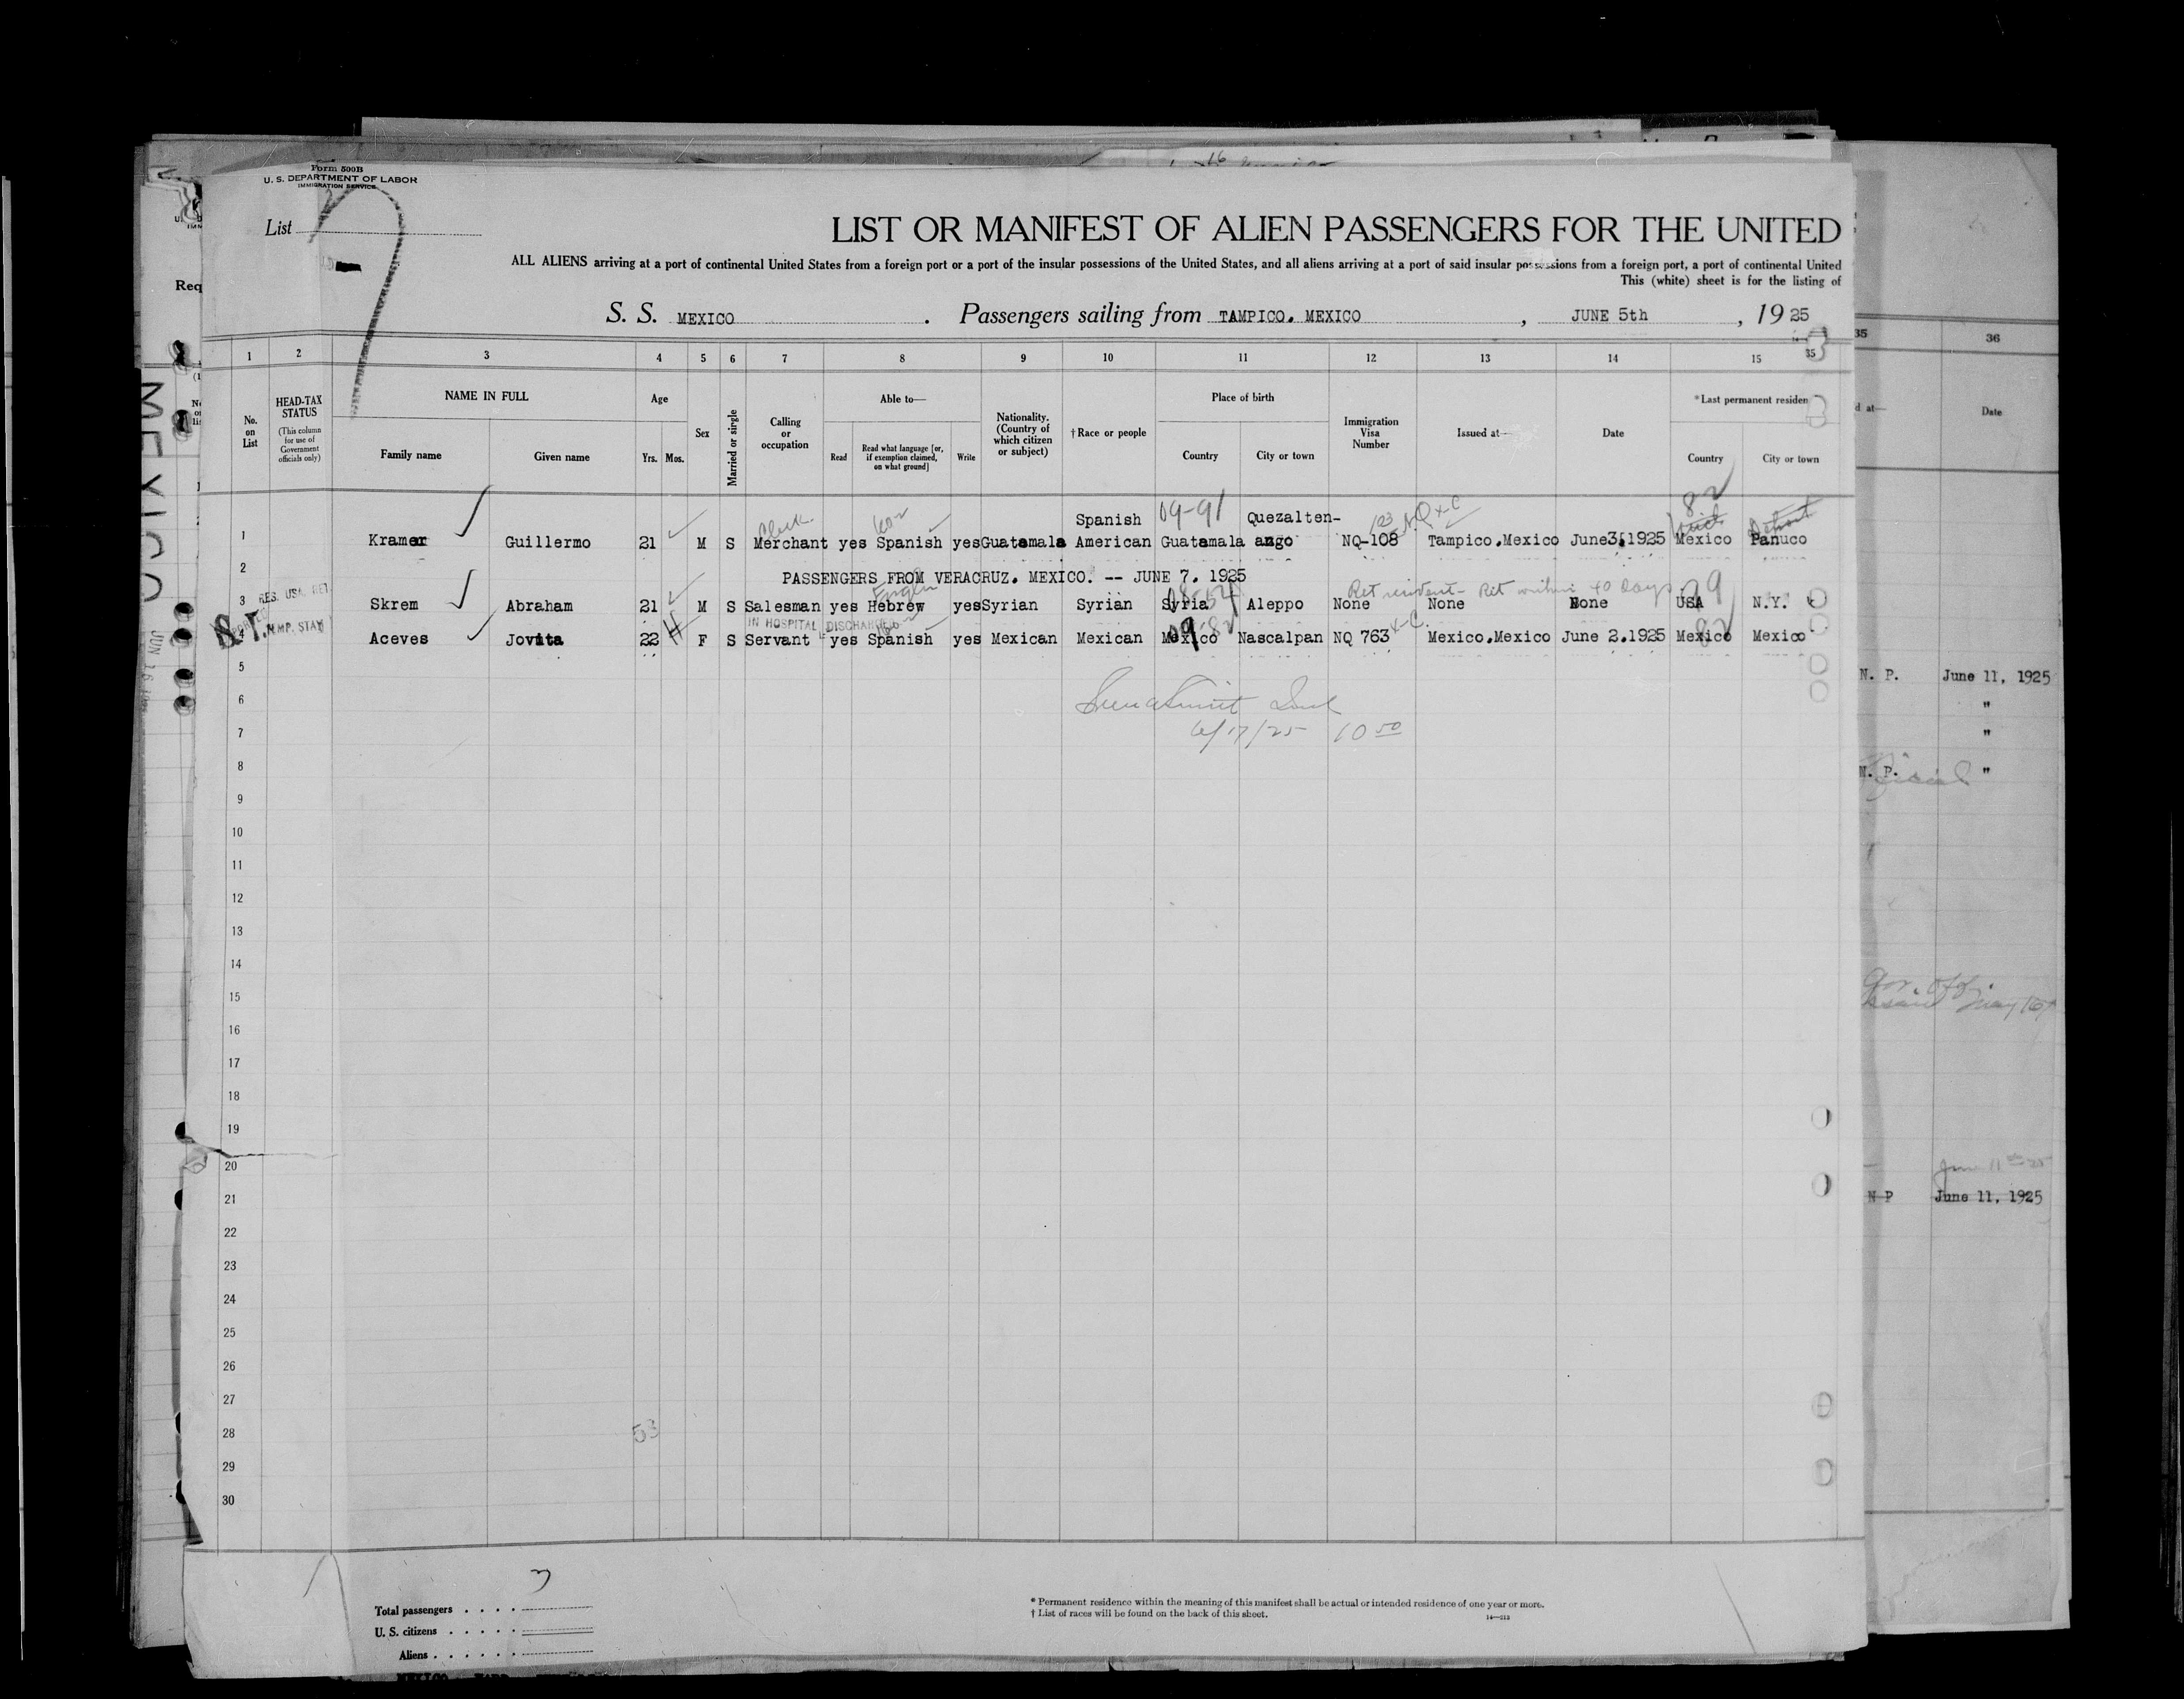 Form 500B
U. S. DEPARTMENT OF LABOR
IMMIGRATION SERVICE
List
LIST OR MANIFEST OF ALIEN PASSENGERS FOR THE UNITED
ALL ALIENS arriving at a port of continental United States from a foreign port or a port of the insular possessions of the United States, and all aliens arriving at a port of said insular possessions from a foreign port, a port of continental United
This (white) sheet is for the listing of
S. S. MEXICO. Passengers sailing from TAMPICO. MEXICO, JUNE 5th, 1925
1 2 3 4 5 6 7 8 9 10 11 12 13 14 15
35 36
No. on List
HEAD-TAX STATUS (This column for use of Government officials only)
NAME IN FULL
Family name Given name
Age
Yrs. Mos.
Sex
Married or single
Calling or occupation
Able to—
Read Read what language [or, if exemption claimed, on what ground] Write
Nationality. (Country of which citizen or subject)
†Race or people
Place of birth
Country City or town
Immigration Visa Number
Issued at—
Date
*Last permanent residen
Country City or town
d at— Date
Clerk 09-91 123 82 Detroit
Spanish Quezalten-
1 Kramer Guillermo 21 M S Merchant yes Spanish yes Guatamala American Guatamala ango NQ-108 Tampico.Mexico June3,1925 Mexico Panuco
2 PASSENGERS FROM VERACRUZ. MEXICO. -- JUNE 7. 1925
RES. USA. RET
Ret resident- Ret within 40 Days 79
3 Skrem Abraham 21 M S Salesman yes Hebrew yes Syrian Syrian Syria Aleppo None None None USA N.Y.
S.I. TEMP. STAY
IN HOSPITAL DISCHARGED
4 Aceves Jovita 22 F S Servant yes Spanish yes Mexican Mexican Mexico Nascalpan NQ 763 Mexico.Mexico June 2.1925 Mexico Mexico
5
6
6/17/25 10 50
7
8
9
10
11
12
13
14
15
16
17
18
19
20
21
22
23
24
25
26
27
28
53
29
30
N. P. June 11, 1925
"
"
N. P. "
N P June 11, 1925
3
Total passengers . . . .
U. S. citizens . . . . .
Aliens . . . . . .
* Permanent residence within the meaning of this manifest shall be actual or intended residence of one year or more.
† List of races will be found on the back of this sheet.
14—212
MEXICO
Req